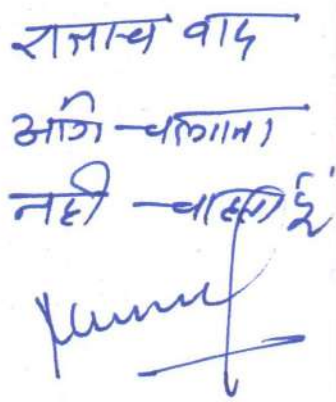 राजाच वाद
आगे चलाना
नही चाहता हूँ